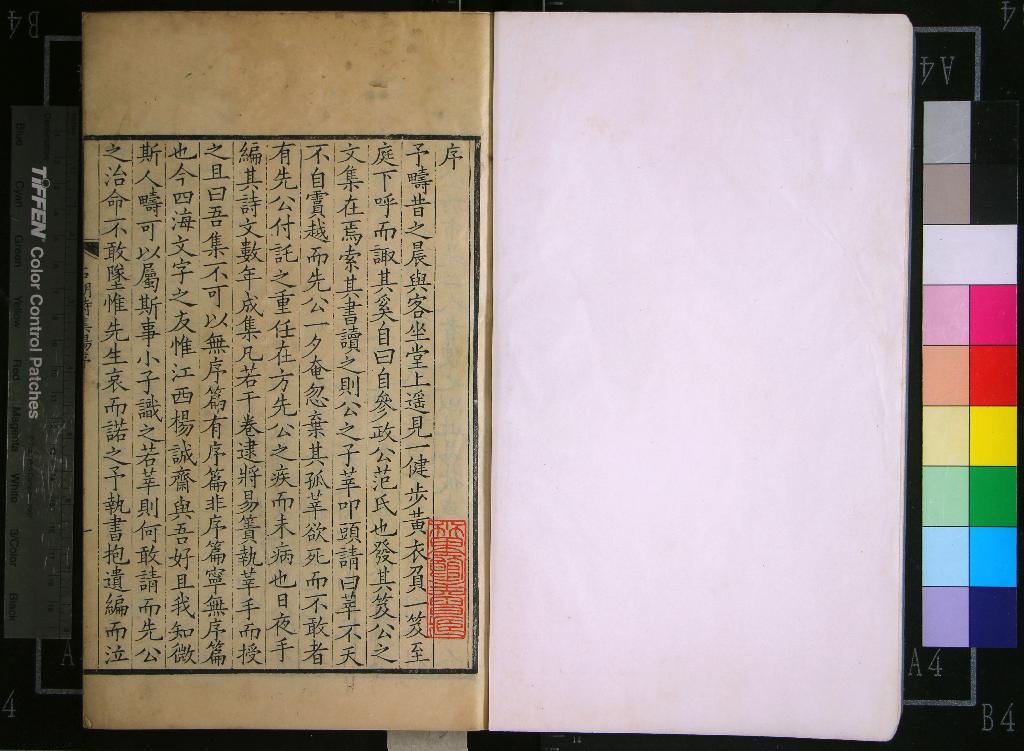 序
予疇昔之晨與客坐堂上遥見一健步黃衣負一笈至
庭下呼而諏其奚自曰自參政公范氏也發其笈公之
文集在焉索其書讀之則公之子莘叩頭請曰莘不天
不自霣越而先公一夕奄忽棄其孤莘欲死而不敢者
有先公付託之重任在方先公之疾而未病也日夜手
編其詩文數年成集凡若干卷逮將易簀執莘手而授
之且曰吾集不可以無序篇有序篇非序篇寧無序篇
也今四海文字之友惟江西楊誠齋與吾好且我知微
斯人疇可以屬斯事小子識之若莘則何敢請而先公
之治命不敢墜惟先生哀而諾之予執書抱遺編而泣
一
TIFFEN Color Control Patches
Blue
Cyan
Green
Yellow
Red
Magenta
White
3Color
Black
B4
A4
A4
A4
B4
4